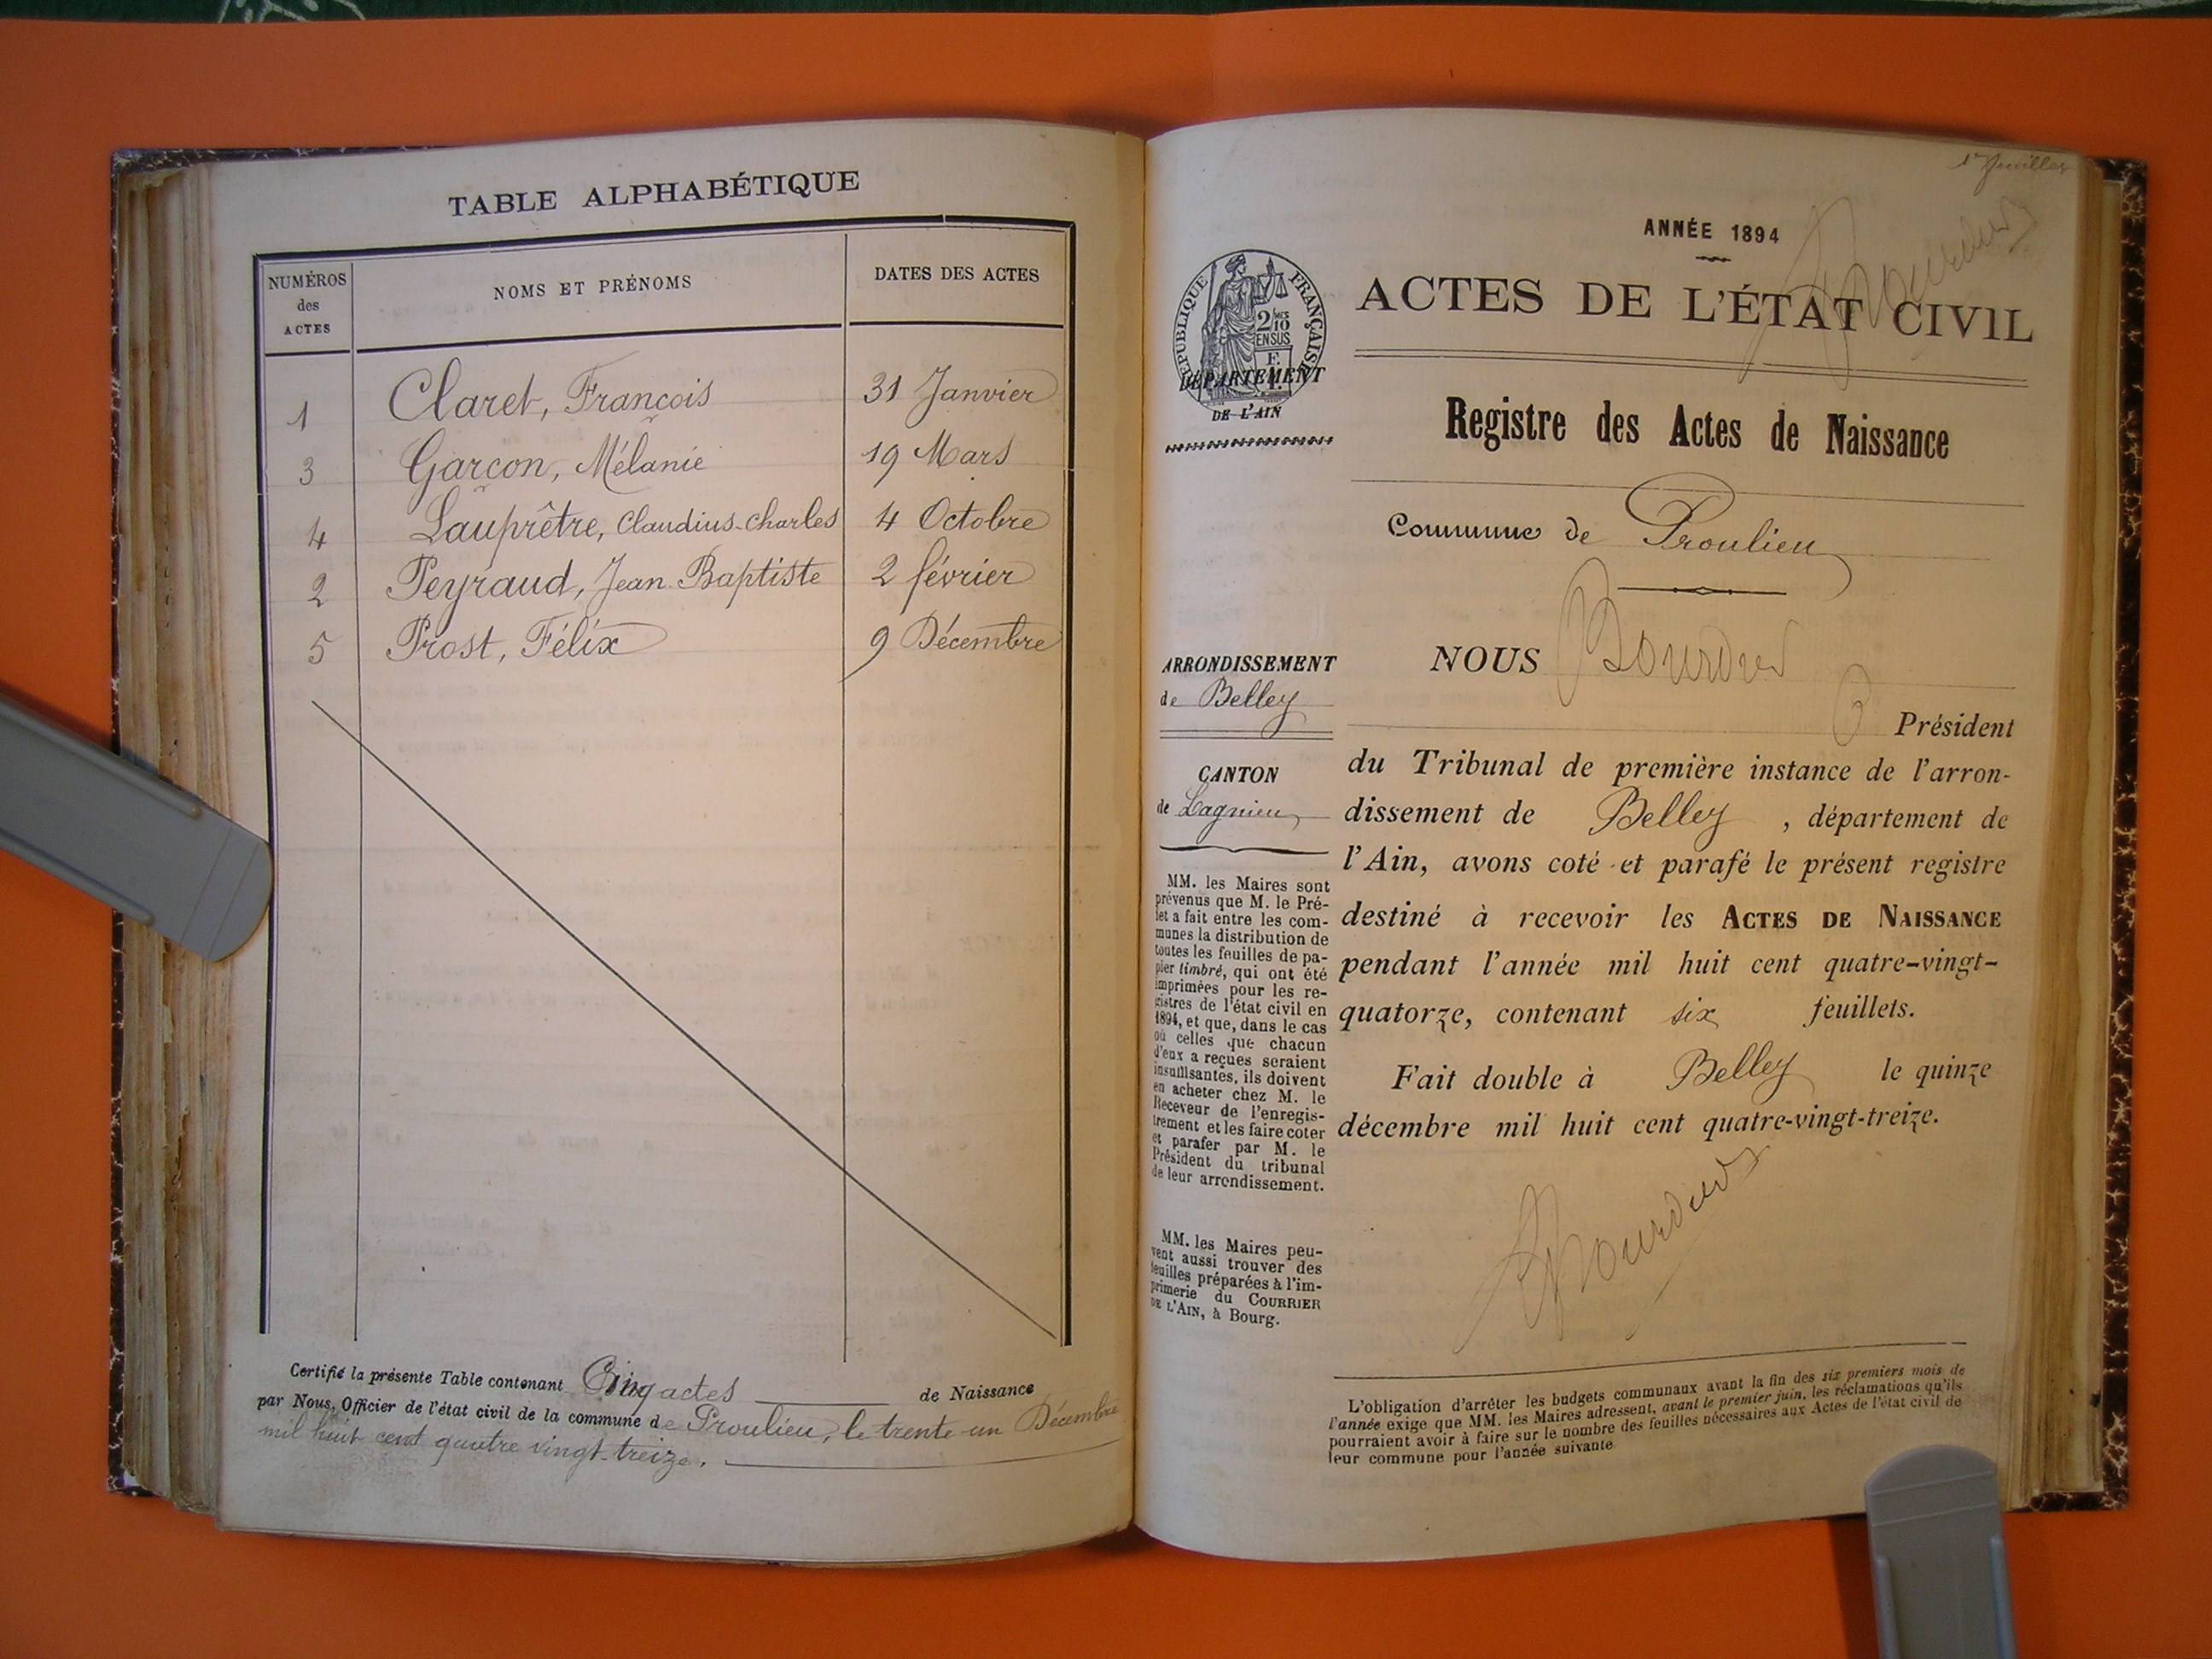 TABLE ALPHABÉTIQUE
NUMÉROS des ACTES NOMS ET PRÉNOMS DATES DES ACTES
1 Claret, François 31 Janvier
3 Garçon, Mélanie 19 Mars
4 Lauprêtre, Claudius-Charles 4 Octobre
2 Peyraud, Jean Baptiste 2 février
5 Prost, Félix 9 Décembre
Certifié la présente Table contenant Cinq actes de Naissance
par Nous, Officier de l'état civil de la commune de Proulieu, le trente-un Décembre
mil huit cent quatre vingt-treize.
1er feuillet
ANNÉE 1894
ACTES DE L'ÉTAT CIVIL
RÉPUBLIQUE FRANÇAISE
2/10 MES
EN SUS
DÉPARTEMENT
DE L'AIN
Registre des Actes de Naissance
Commune de Proulieu
ARRONDISSEMENT
de Belley
CANTON
de Lagnieu
MM. les Maires sont
prévenus que M. le Pré-
fet a fait entre les com-
munes la distribution de
toutes les feuilles de pa-
pier timbré, qui ont été
imprimées pour les re-
gistres de l'état civil en
1894, et que, dans le cas
où celles que chacun
d'eux a reçues seraient
insuffisantes, ils doivent
en acheter chez M. le
Receveur de l'enregis-
trement et les faire coter
et parafer par M. le
Président du tribunal
de leur arrondissement.
MM. les Maires peu-
vent aussi trouver des
feuilles préparées à l'im-
primerie du COURRIER
DE L'AIN, à Bourg.
NOUS Bourdin
Président
du Tribunal de première instance de l'arron-
dissement de Belley, département de
l'Ain, avons coté et parafé le présent registre
destiné à recevoir les ACTES DE NAISSANCE
pendant l'année mil huit cent quatre-vingt-
quatorze, contenant six feuillets.
Fait double à Belley le quinze
décembre mil huit cent quatre-vingt-treize.
L'obligation d'arrêter les budgets communaux avant la fin des six premiers mois de
l'année exige que MM. les Maires adressent, avant le premier juin, les réclamations qu'ils
pourraient avoir à faire sur le nombre des feuilles nécessaires aux Actes de l'état civil de
leur commune pour l'année suivante